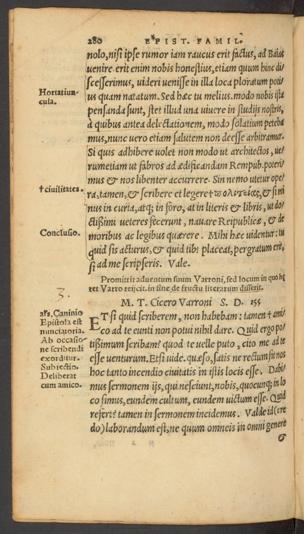 280 EPIST. FAMIL.
nolo, nisi ipse rumor iam raucus erit factus, ad Baias
uenire erit enim nobis honestius, etiam quum hinc di-
scesserimus, uideri uenisse in illa loca ploratum poti-
us quam natatum. Sed hæc tu melius. modo nobis ista
Hortatiun-
cula.
pensanda sunt, stet illud una uiuere in studijs nostris,
à quibus antea delectationem, modo solatium peteba
mus, nunc uero etiam salutem non deesse arbitramur.
Si quis adhibere uolet non modo ut architectos, ue-
rumetiam ut fabros ad ædificandam Rempub. poteri
mus & nos libenter accurrere. Sin nemo utetur ope-
† ciuilitatea.
ra, tamen, & scribere et legere † πολιτείας, & si mi
nus in curia, atq; in foro, at in literis & libris, ut do-
ctißimi ueteres fecerunt, nauare Reipublicæ, & de
Conclusio.
moribus ac legibus quærere. Mihi hæc uidentur: tu
quid sis acturus, & quid tibi placeat, pergratum erit,
si ad me scripseris. Vale.
Promittit aduentum suum Varroni, sed locum in quo ha
ret Varro reijcit. in fine de fructu literarum disserit.
3.
M. T. Cicero Varroni S. D. 155
Caninio
Epistola est
nunciatoria.
Ab occasio-
ne scribendi
exorditur.
Subiectio.
Deliberat
cum amico.
ETsi quid scriberem, non habebam: tamen †
co ad te eunti non potui nihil dare. Quid ergo po
tißimum scribam? quod te uelle puto, cito me ad te
esse uenturum. Etsi uide. quæso, satis ne rectum sit nos
hoc tanto incendio ciuitatis in istis locis esse. Dabi-
mus sermonem ijs, qui nesciunt, nobis, quocunq; in lo
co simus, eundem cultum, eundem uictum esse. Quid
refert? tamen in sermonem incidemus. Valde id (cre
do) laborandum est, ne quum omneis in omni genere
&